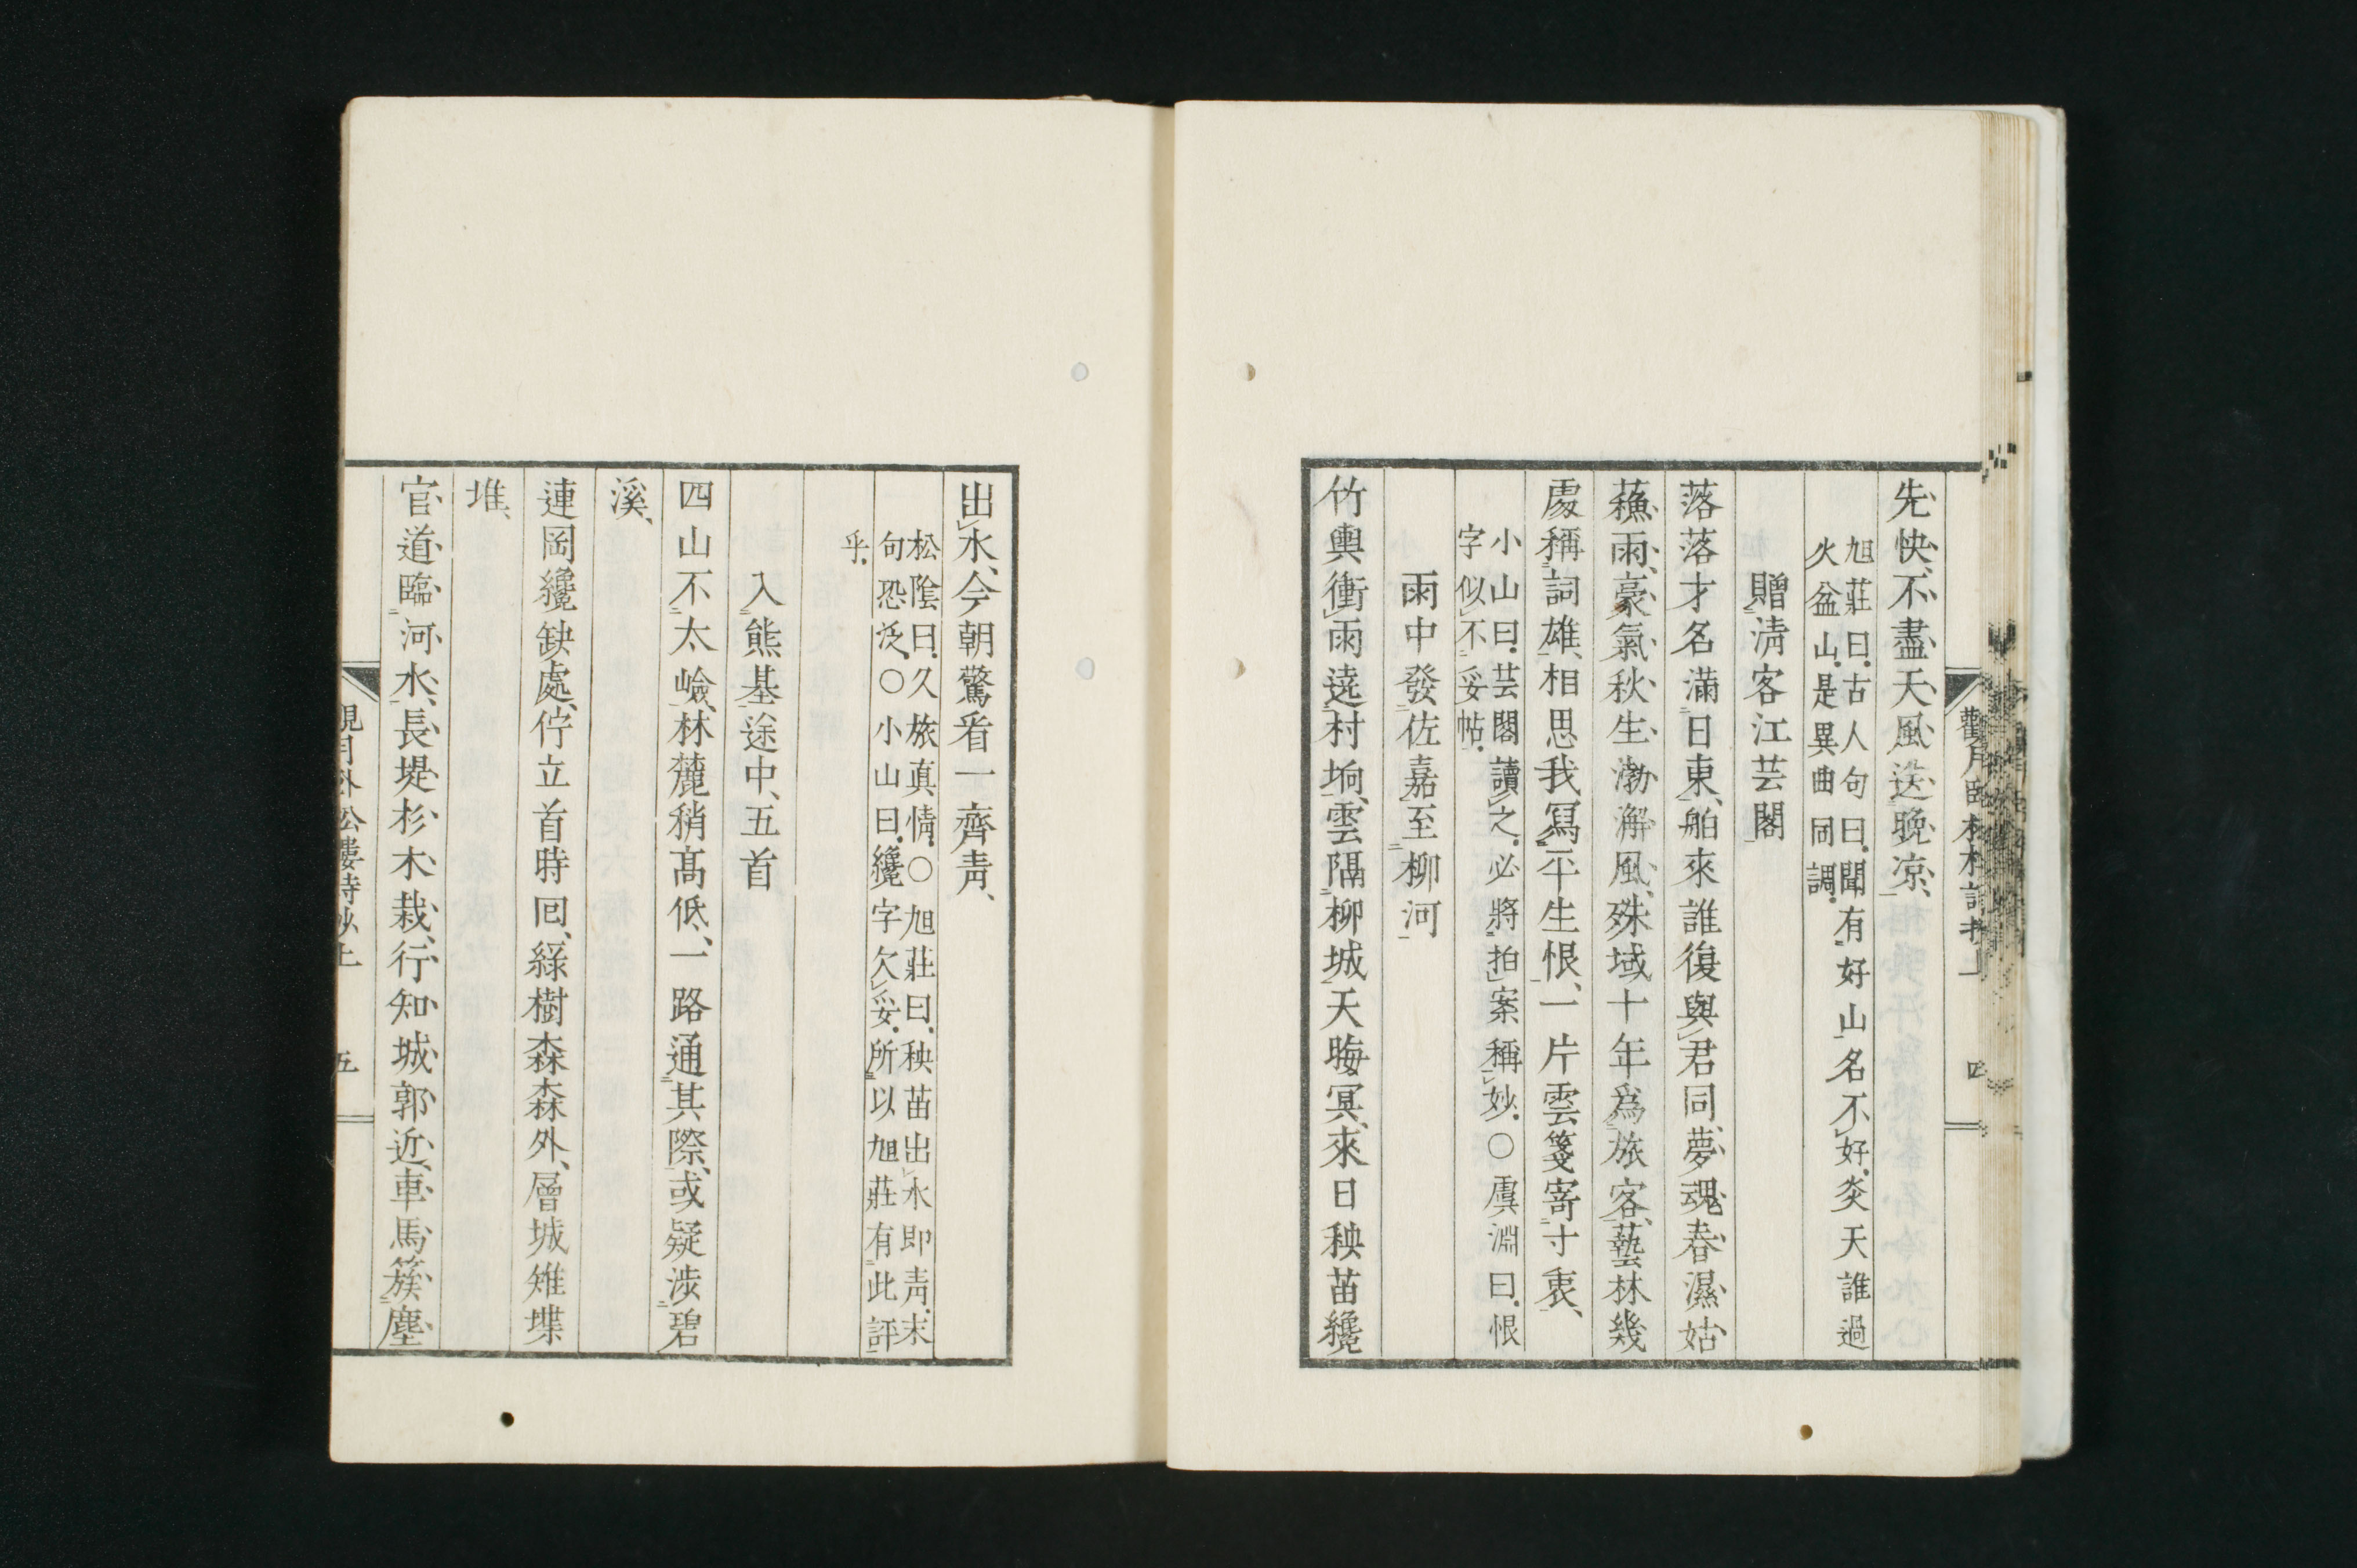 先快、不盡天風送晚凉、
旭莊曰。古人句曰。聞有好山名不好。炎天誰過
火盆山。是異曲同調。
贈淸客江芸閣
落落才名滿日東、舶來誰復與君同、夢魂春濕姑
蘓雨、豪氣秋生渤澥風、殊域十年爲旅客、藝林幾
處稱詞雄、相思我寫平生恨、一片雲箋寄寸衷、
小山曰。芸閣讀之。必將拍案稱妙。○虞淵曰。恨
字似不妥帖。
雨中發佐嘉至柳河
竹輿衝雨遶村坰、雲隔柳城天晦冥、來日秧苗纔
出水、今朝驚看一齊靑、
松陰曰。久旅真情。○旭莊曰。秧苗出水即靑。末
句恐泛。○小山曰。纔字欠妥。所以旭莊有此評
乎。
入熊基途中、五首
四山不太嶮、林麓稍髙低、一路通其際、或疑涉碧
溪、
連岡纔缺處、佇立首時回、綠樹森森外、層城雉堞
堆、
官道臨河水、長堤杉木栽、行知城郭近、車馬簇塵
五